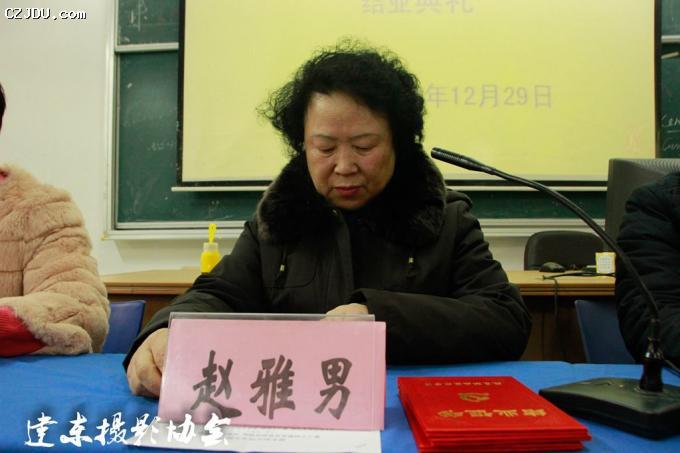 CZJDU.com
结业典礼
年12月29日
赵雅男
结业证书
建东摄影协会